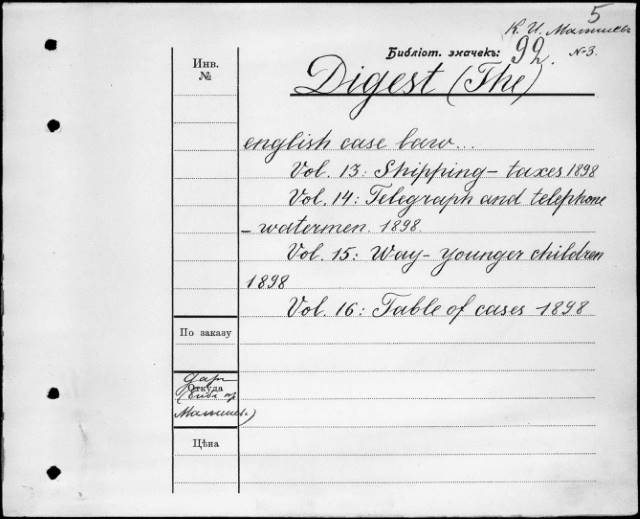 5
К. И. Малышев
Библіот. значекъ: 92. №3.
Инв.
№
Digest (The)
english case law...
Vol. 13: Shipping – taxes 1898
Vol. 14: Telegraph and telephone
– watermen. 1898.
Vol. 15: Way – younger children
1898
Vol. 16: Table of cases 1898
По заказу
Даръ
Откуда
Малышев.)
Цѣна